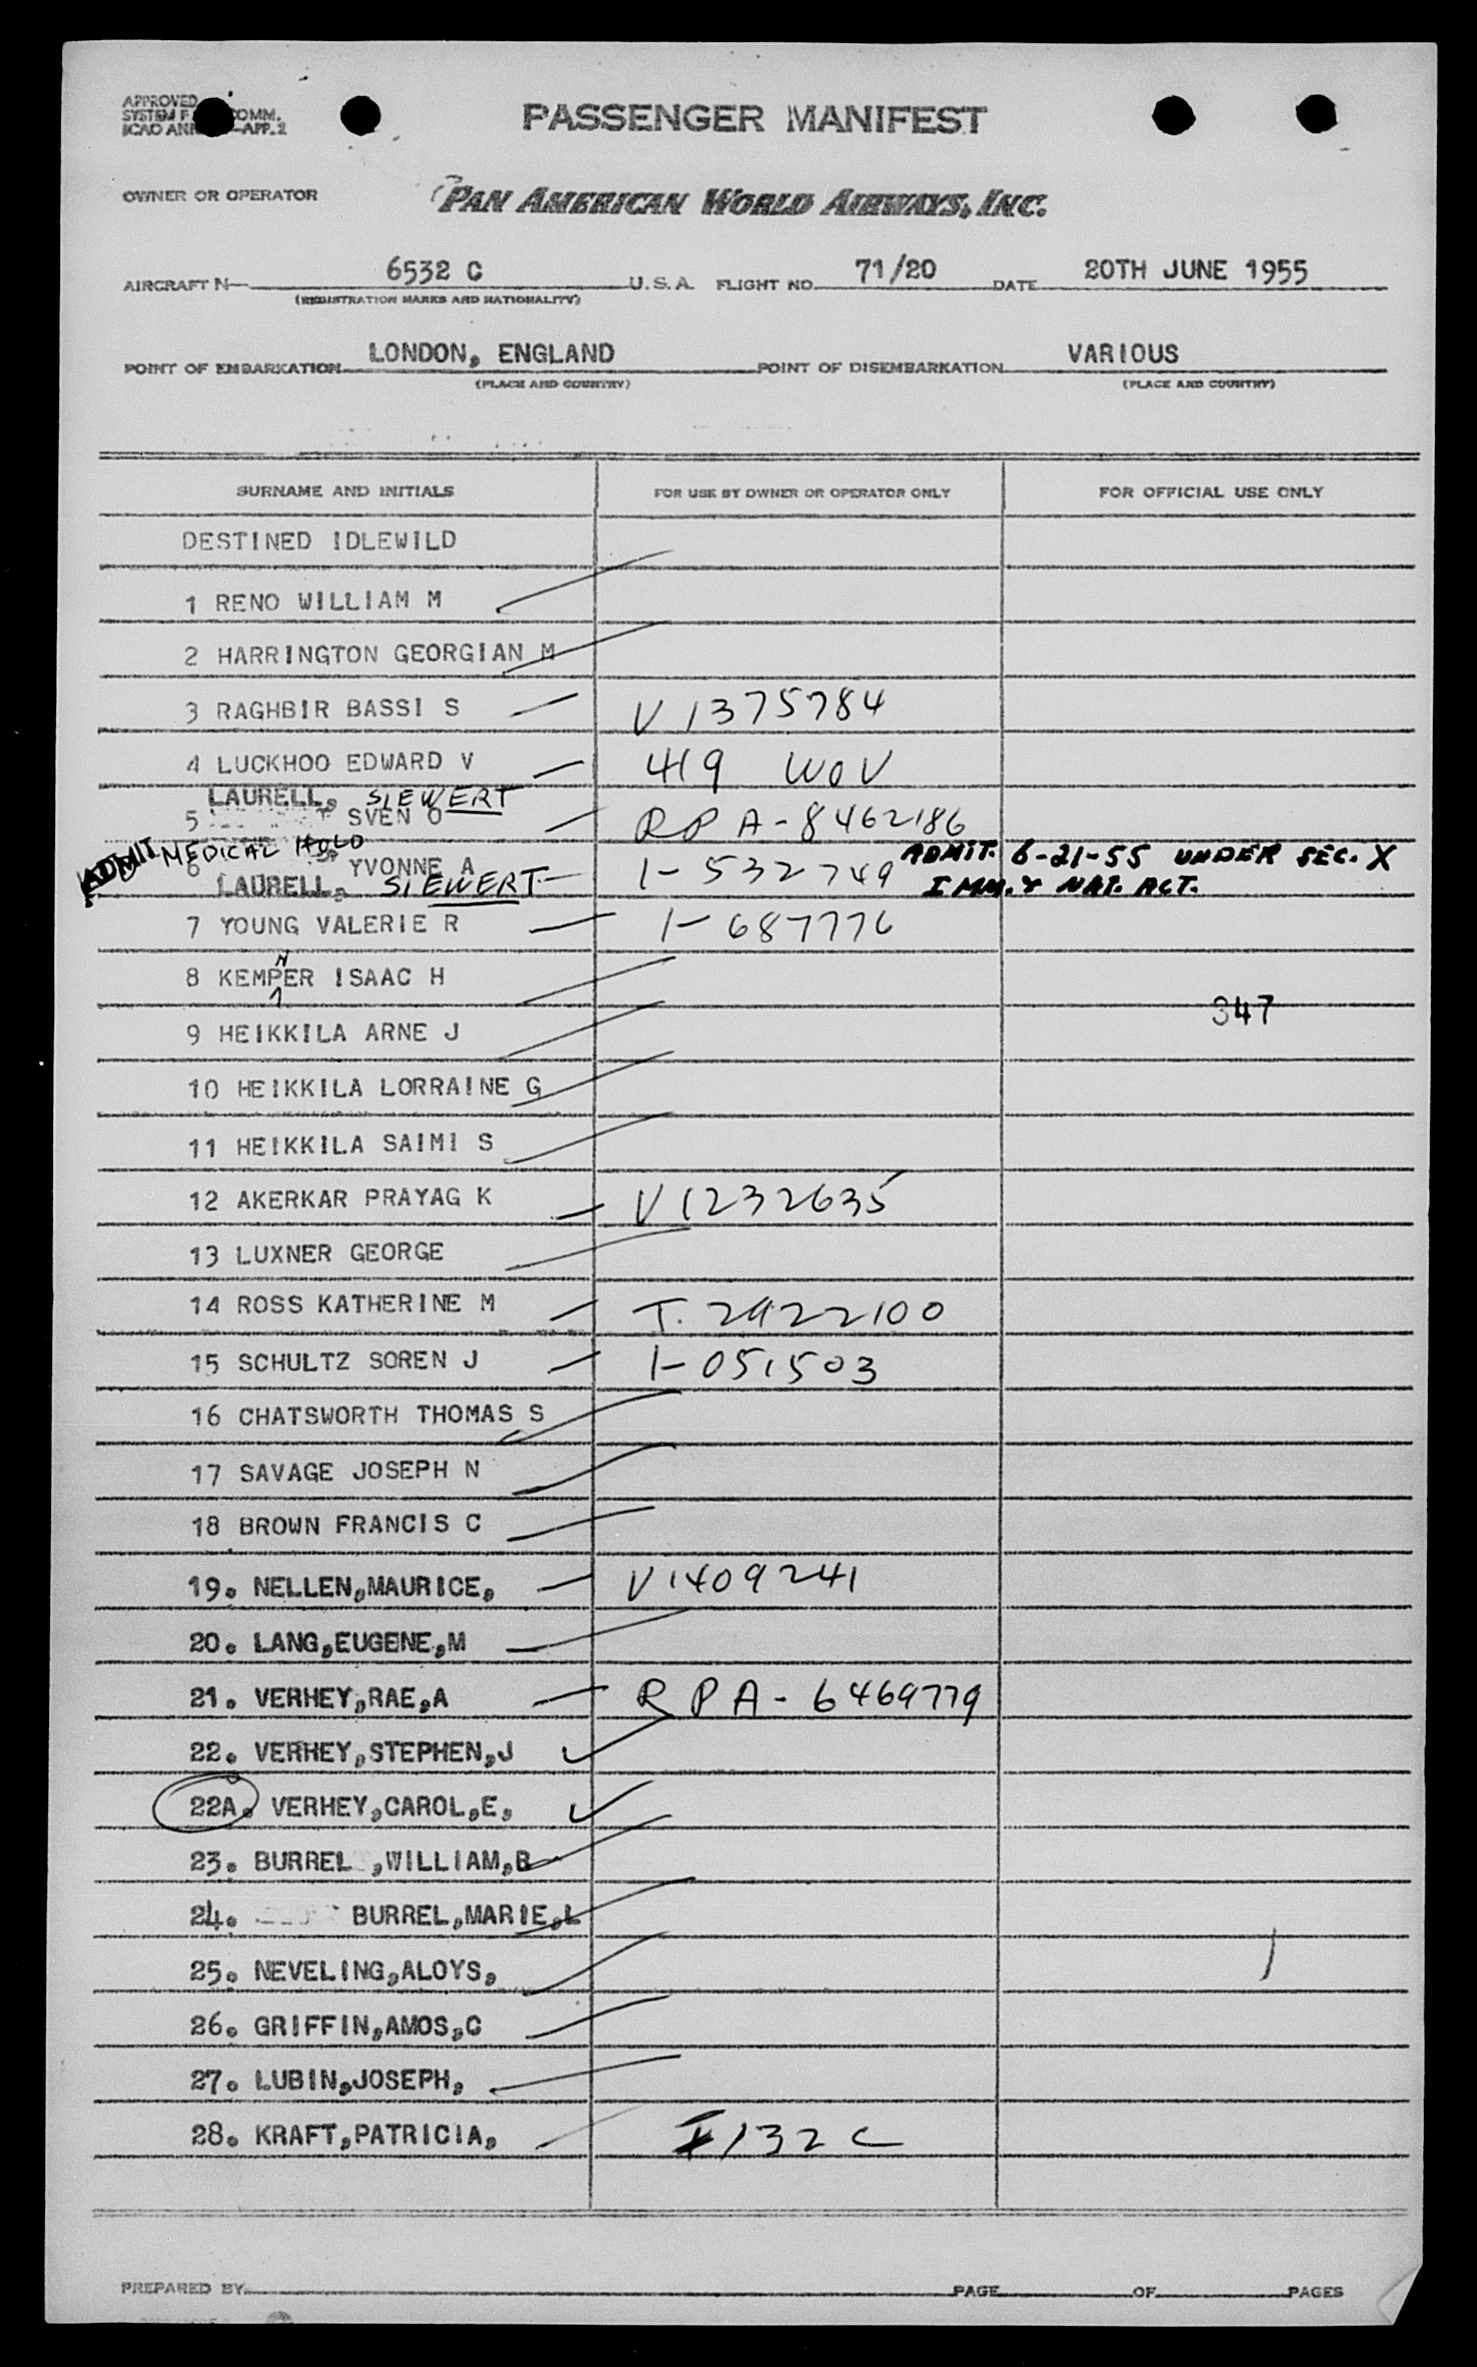 APPROVED
SYSTEM F COMM.
ICAO ANN —APP. 2
PASSENGER MANIFEST
OWNER OR OPERATOR PAN AMERICAN WORLD AIRWAYS, INC.
AIRCRAFT N— 6532 C U.S.A. FLIGHT NO. 71/20 DATE 20TH JUNE 1955
(REGISTRATION MARKS AND NATIONALITY)
POINT OF EMBARKATION LONDON, ENGLAND POINT OF DISEMBARKATION VARIOUS
(PLACE AND COUNTRY) (PLACE AND COUNTRY)
SURNAME AND INITIALS FOR USE BY OWNER OR OPERATOR ONLY FOR OFFICIAL USE ONLY
DESTINED IDLEWILD
1 RENO WILLIAM M
2 HARRINGTON GEORGIAN M
3 RAGHBIR BASSI S V1375784
4 LUCKHOO EDWARD V 419 WOV
LAURELL, SIEWERT
5 SVEN O RPA-8462186
ADMIT MEDICAL HOLD
6 YVONNE A 1-532749 ADMIT. 6-21-55 UNDER SEC. X
LAURELL, SIEWERT. IMM. & NAT. ACT.
7 YOUNG VALERIE R 1-687776
N
8 KEMPER ISAAC H
347
9 HEIKKILA ARNE J
10 HEIKKILA LORRAINE G
11 HEIKKILA SAIMI S
12 AKERKAR PRAYAG K V1232635
13 LUXNER GEORGE
14 ROSS KATHERINE M T. 2922100
15 SCHULTZ SOREN J 1-051503
16 CHATSWORTH THOMAS S
17 SAVAGE JOSEPH N
18 BROWN FRANCIS C
19. NELLEN,MAURICE, V1409241
20. LANG,EUGENE,M
21. VERHEY,RAE,A RPA-6469779
22. VERHEY,STEPHEN,J
22A. VERHEY,CAROL,E,
23. BURREL ,WILLIAM,B
24. BURREL,MARIE,L
25. NEVELING,ALOYS,
26. GRIFFIN,AMOS,C
27. LUBIN,JOSEPH,
28. KRAFT,PATRICIA, I132C
PREPARED BY PAGE OF PAGES